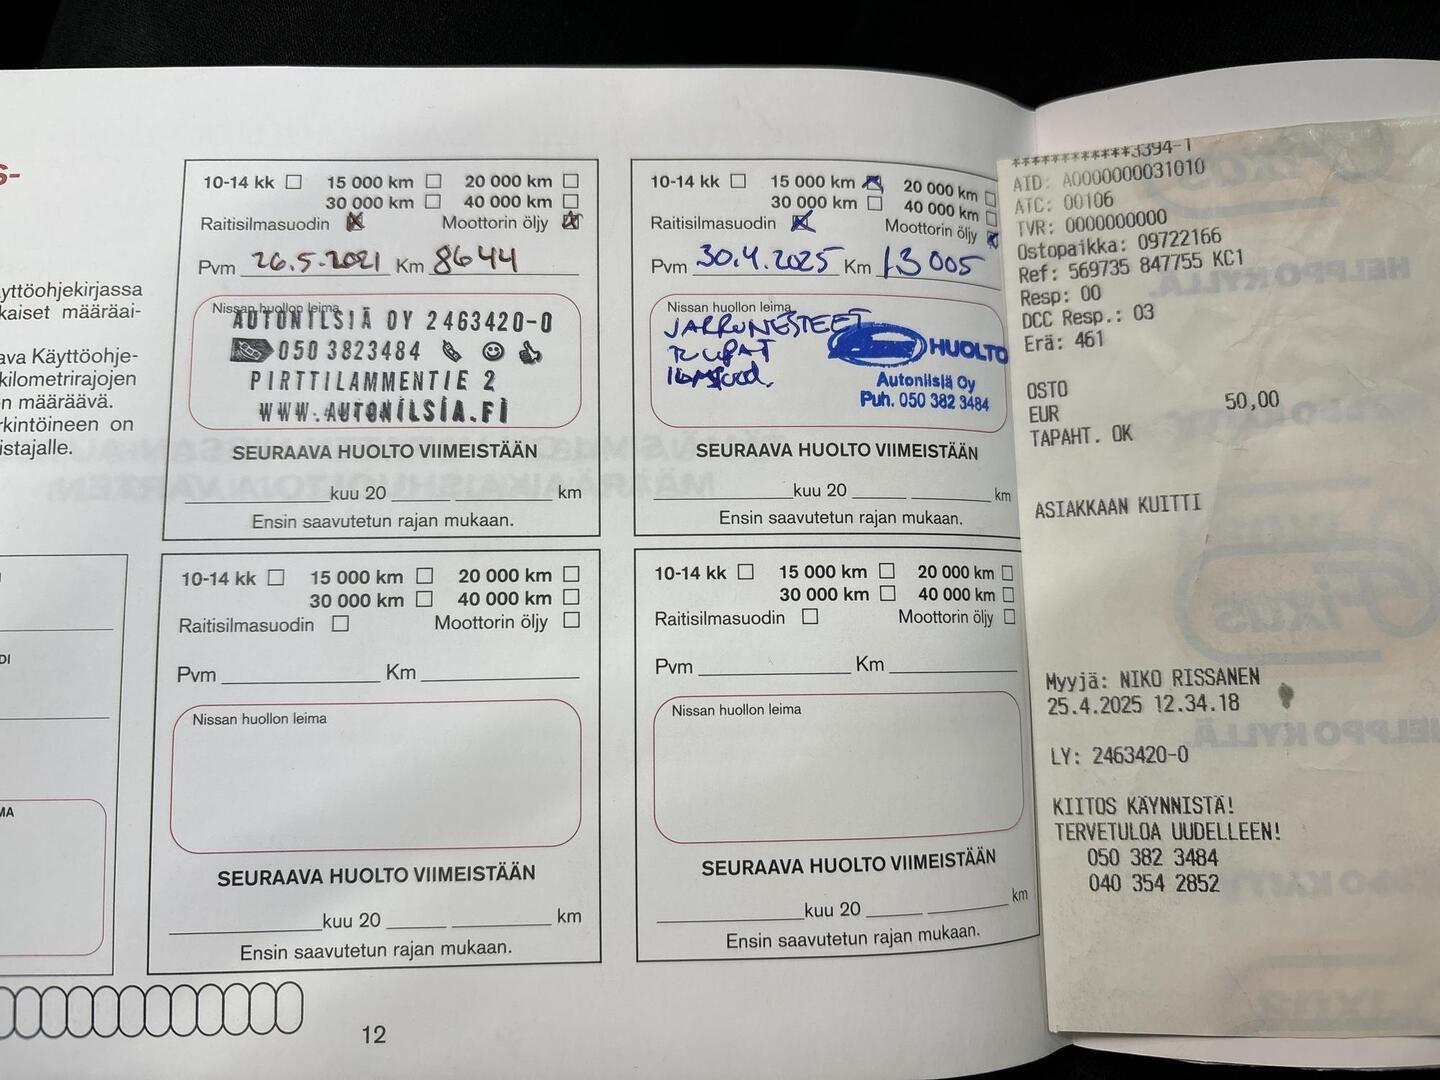 S-
yttöohjekirjassa
kaiset määräai-
ava Käyttöohje-
kilometrirajojen
on määräävä.
rkintöineen on
istajalle.
10-14 kk 15 000 km 20 000 km
30 000 km 40 000 km
Raitisilmasuodin Moottorin öljy
Pvm 26.5.2021 Km 8644
Nissan huollon leima
AUTONILSIÄ OY 2463420-0
050 3823484
PIRTTILAMMENTIE 2
WWW.AUTONILSIA.FI
SEURAAVA HUOLTO VIIMEISTÄÄN
kuu 20 km
Ensin saavutetun rajan mukaan.
10-14 kk 15 000 km 20 000 km
30 000 km 40 000 km
Raitisilmasuodin Moottorin öljy
Pvm 30.4.2025 Km 13005
Nissan huollon leima
JARRUNESTEET
HUOLTO
Autonilsiä Oy
Puh. 050 382 3484
SEURAAVA HUOLTO VIIMEISTÄÄN
kuu 20 km
Ensin saavutetun rajan mukaan.
10-14 kk 15 000 km 20 000 km
30 000 km 40 000 km
Raitisilmasuodin Moottorin öljy
Pvm Km
Nissan huollon leima
SEURAAVA HUOLTO VIIMEISTÄÄN
kuu 20 km
Ensin saavutetun rajan mukaan.
10-14 kk 15 000 km 20 000 km
30 000 km 40 000 km
Raitisilmasuodin Moottorin öljy
Pvm Km
Nissan huollon leima
SEURAAVA HUOLTO VIIMEISTÄÄN
kuu 20 km
Ensin saavutetun rajan mukaan.
DI
MA
12
************3394-1
AID: A0000000031010
ATC: 00106
TVR: 0000000000
Ostopaikka: 09722166
Ref: 569735 847755 KC1
Resp: 00
DCC Resp.: 03
Erä: 461
OSTO
EUR 50,00
TAPAHT. OK
ASIAKKAAN KUITTI
Myyjä: NIKO RISSANEN
25.4.2025 12.34.18
LY: 2463420-0
KIITOS KÄYNNISTÄ!
TERVETULOA UUDELLEEN!
050 382 3484
040 354 2852